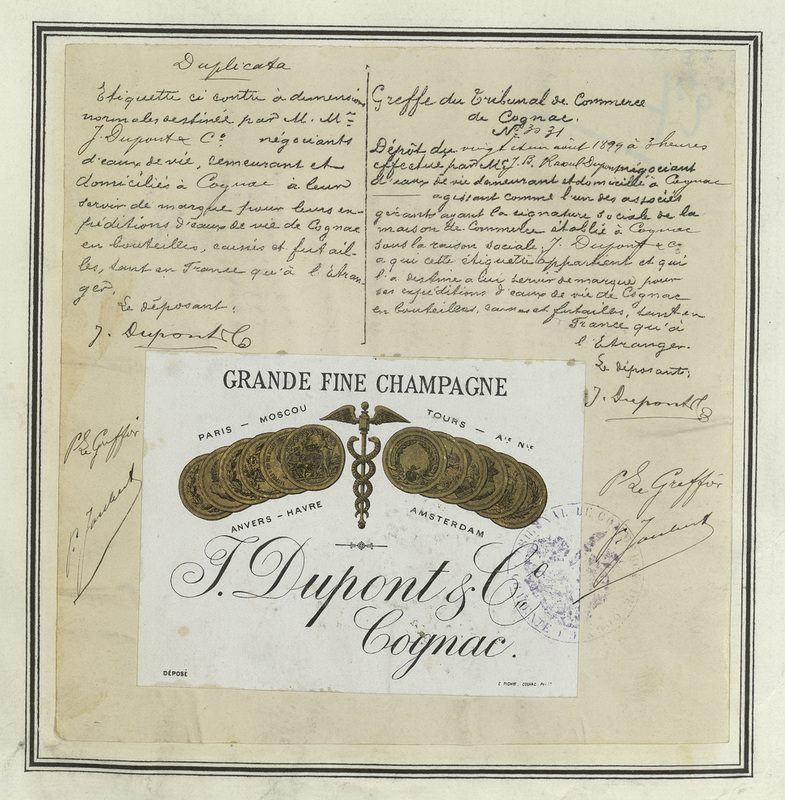 Duplicata
Etiquette ci contre à dimensions
normales destinée par M. Mrs
J. Dupont & Co négociants
d'eaux de vie, demeurant et
domiciliés à Cognac a leur
servir de marque pour leurs ex-
péditions d'eaux de vie de Cognac
en bouteilles, caisses et futail-
les, tant en France qu'à l'étran-
ger.
Le déposant:
J. Dupont & Co
Greffe du Tribunal de Commerce
de Cognac.
No 3031
Dépôt du vingt et un août 1899 à 3 heures
effectué par Mr J. B. Raoul Dupont négociant
d'eaux de vie demeurant et domicilié à Cognac
agissant comme l'un des associés
gérants ayant la signature sociale de la
maison de Commerce établie à Cognac
sous la raison sociale J. Dupont & Co
a qui cette étiquette appartient et qui
l'a destine a lui servir de marque pour
ses expéditions d'eaux de vie de Cognac
en bouteilles, caisses et futailles, tant en
France qu'à
l'Etranger.
Le déposant:
J. Dupont & Co
Le Greffier
Joubert
Le Greffier
Joubert
GRANDE FINE CHAMPAGNE
PARIS – MOSCOU
TOURS – Aie Nle
ANVERS – HAVRE
AMSTERDAM
J. Dupont & Co
Cognac.
DÉPOSÉ
TRIBUNAL DE COMMERCE